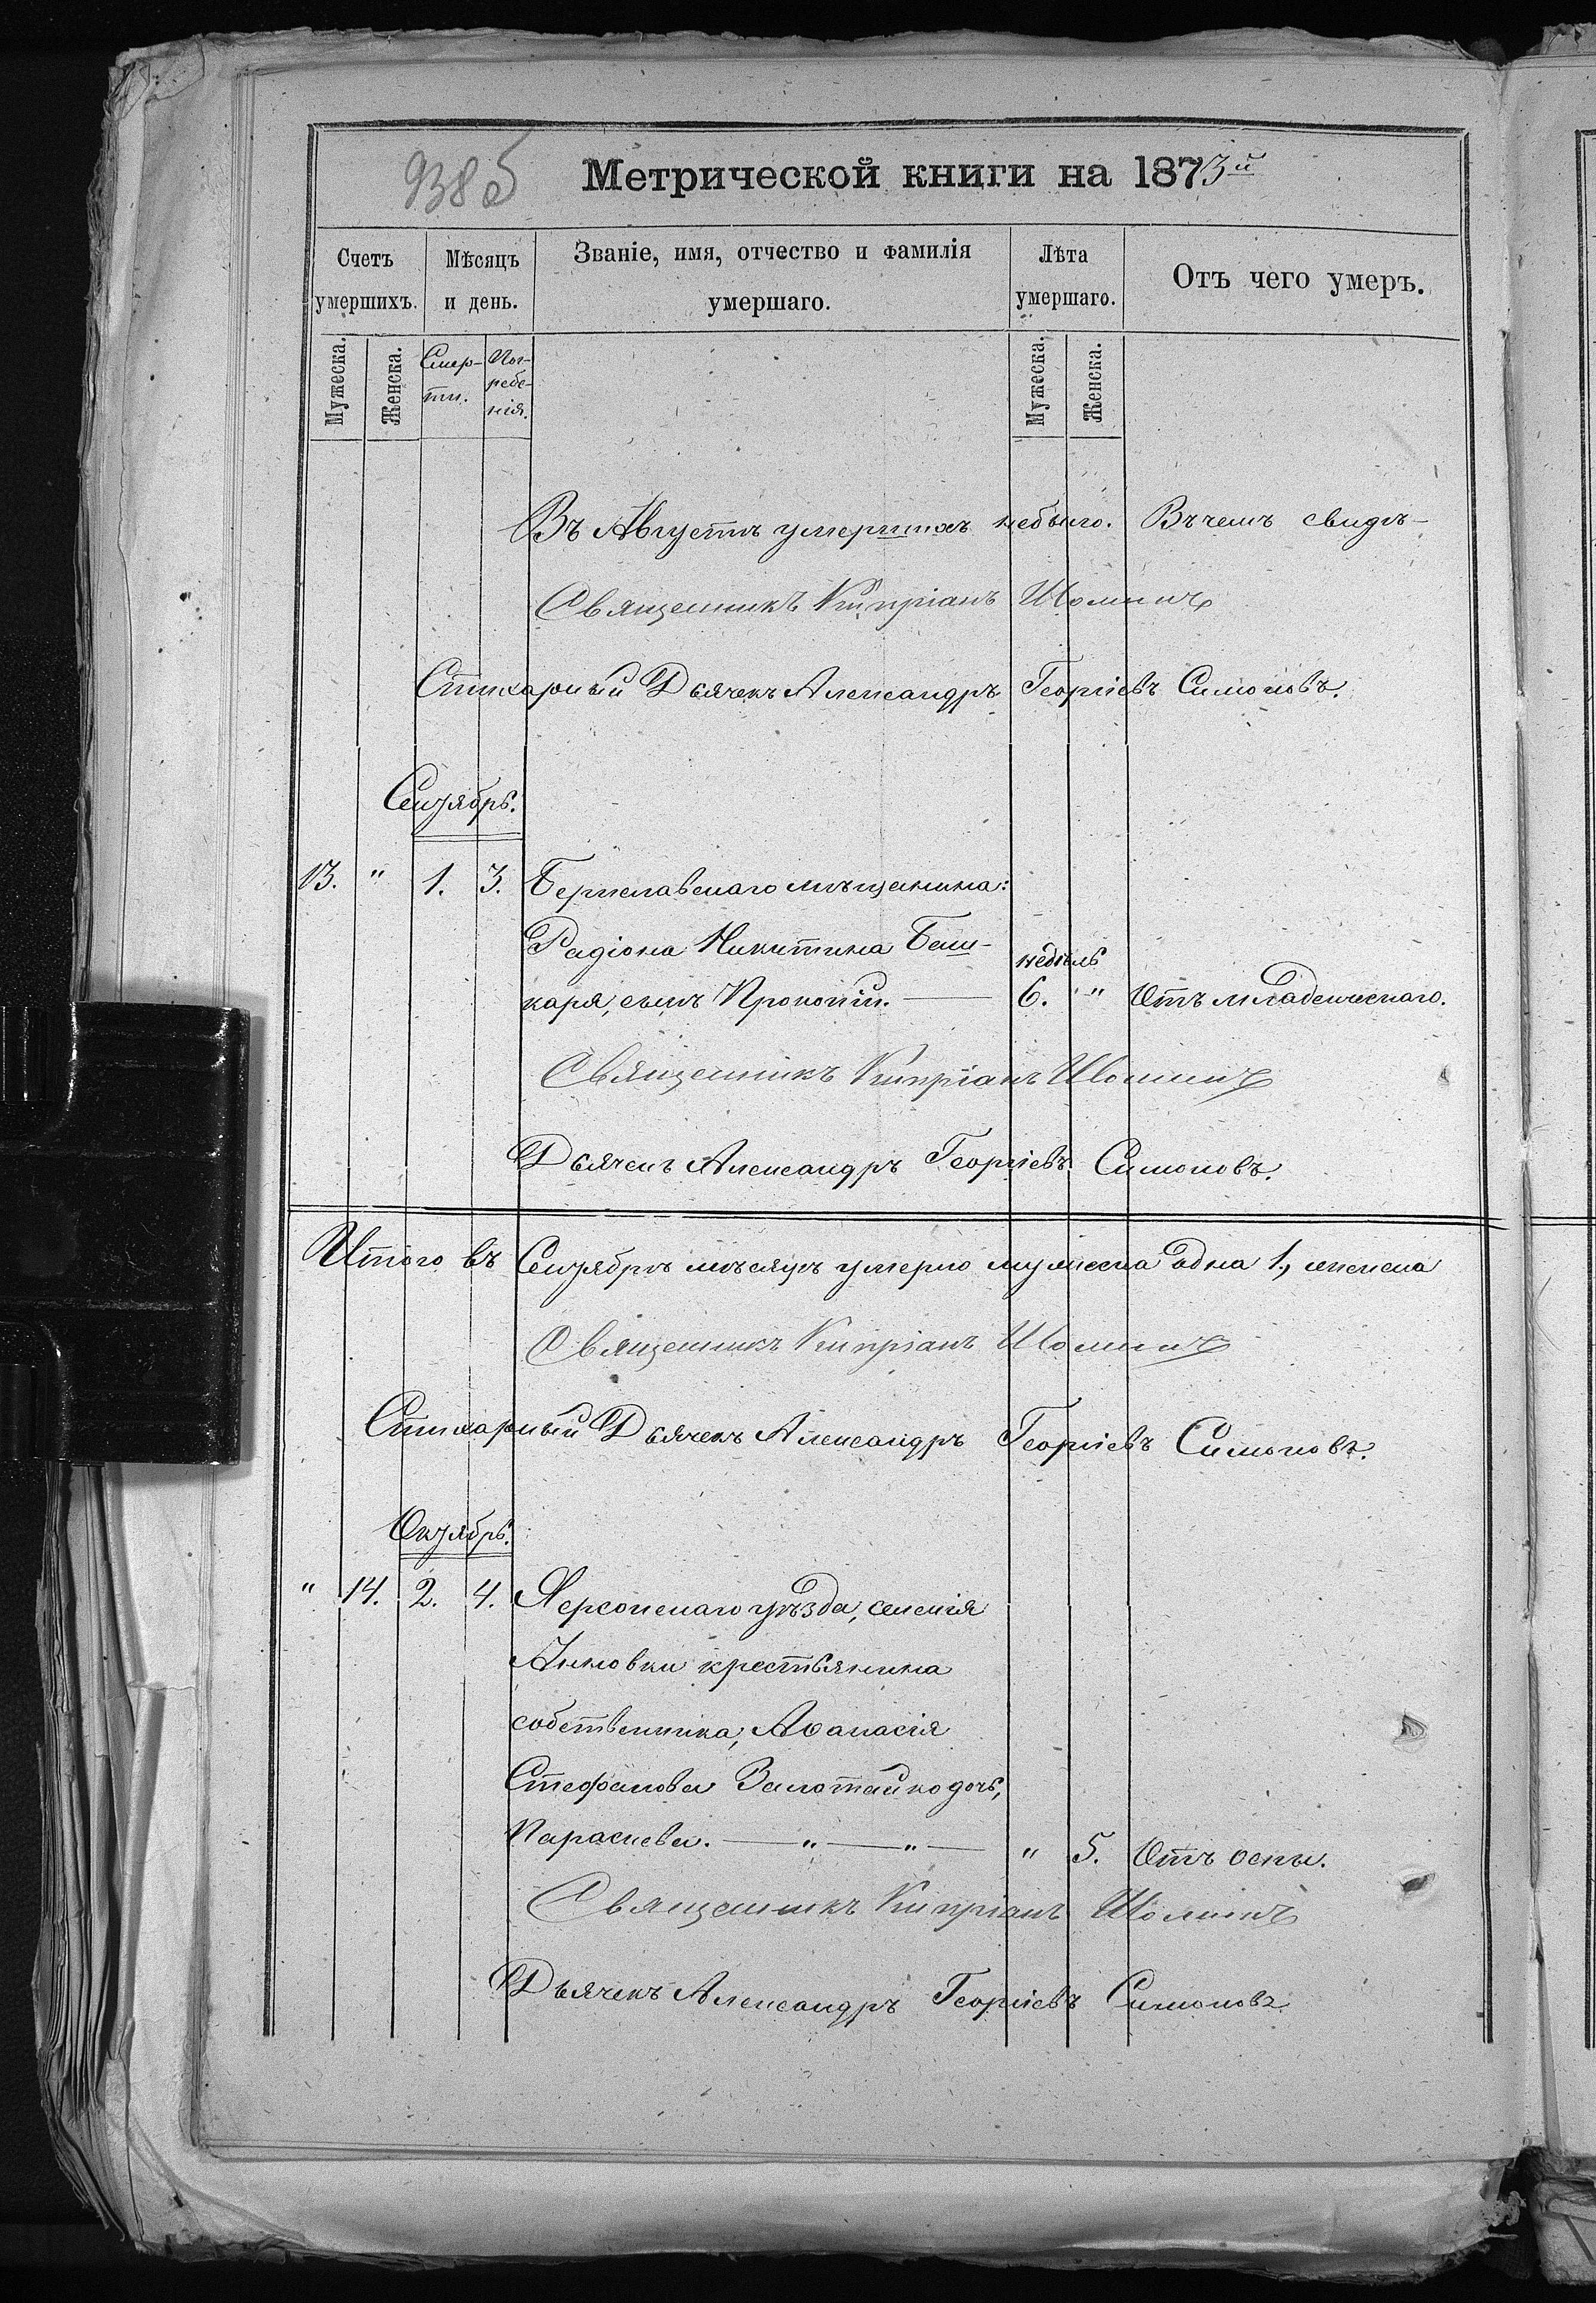 938 об
Метрической книги на 1873й
Счетъ умершихъ.
Мѣсяцъ и день.
Званіе, имя, отчество и фамилія умершаго.
Лѣта умершаго.
Отъ чего умеръ.
Мужеска.
Женска.
Смер-
ти.
Пог-
ребе-
нія.
Мужеска.
Женска.
Въ Августѣ умершихъ небыло. Въ чемъ свидѣ-
Священникъ Кипріанъ
Стихарный Дьячекъ Александръ Георгіевъ Симоновъ.
Сентябрь.
13. " 1. 3. Бериславскаго мѣщанина:
Радіона Никитина Баш-
недѣль
каря, сынъ Прокопій. — 6. " Отъ младенческаго.
Священникъ Кипріанъ
Дьячекъ Александръ Георгіевъ Симоновъ.
Итого въ Сентябрѣ мѣсяцѣ умерло мужеска одна 1., женска
Священникъ Кипріанъ
Стихарный Дьячекъ Александръ Георгіевъ Симоновъ.
Октябрь.
" 14. 2. 4. Херсонскаго уѣзда, селенія
Анновки крестьянина
собственника, Аѳанасія
Стефанова дочь,
Параскева. — " — " — " 5. Отъ оспы.
Священникъ Кипріанъ
Дьячекъ Александръ Георгіевъ Симоновъ